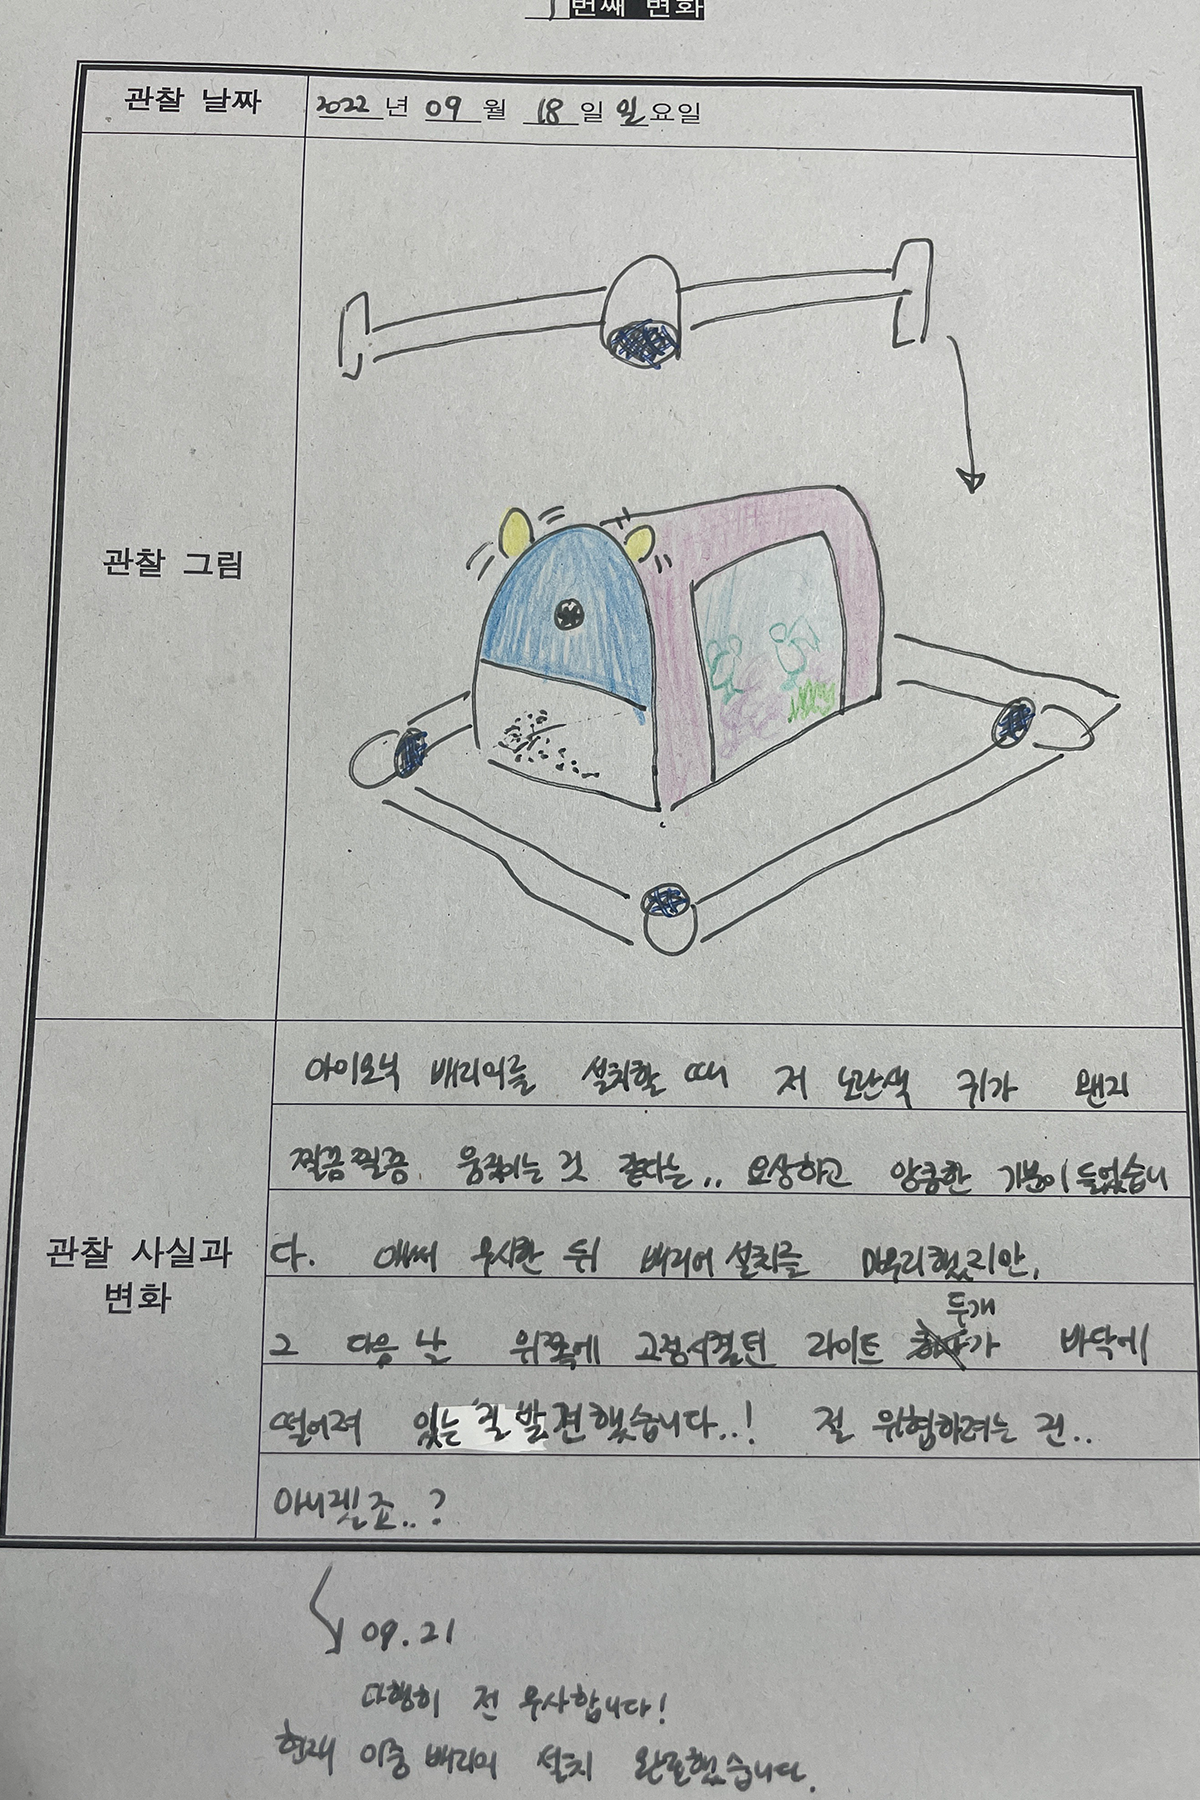 번째 변화
관찰 날짜 2022년 09월 18일 일요일
관찰 그림
관찰 사실과
변화
아이오닉 배리어를 설치할 때 저 노란색 귀가 왠지
찔끔찔끔 움직이는 것 같다는.. 요상하고 앙큼한 기분이 들었습니
다. 애써 무시한 뒤 배리어 설치를 마무리했지만,
두개
그 다음 날 위쪽에 고정시켰던 라이트 가 바닥에
떨어져 있는 걸 발견했습니다..! 절 위협하려는 건..
아니겠죠..?
09.21
다행히 전 무사합니다!
현재 이중 배리어 설치 완료했습니다.